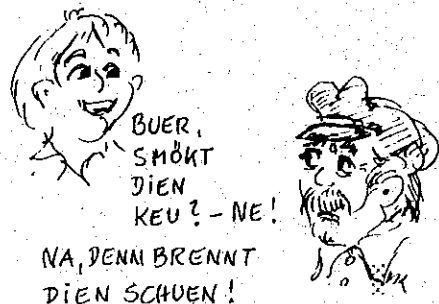 BUER,
SMÖKT
DIEN
KEU? – NE!
NA, DENN BRENNT
DIEN SCHUEN!